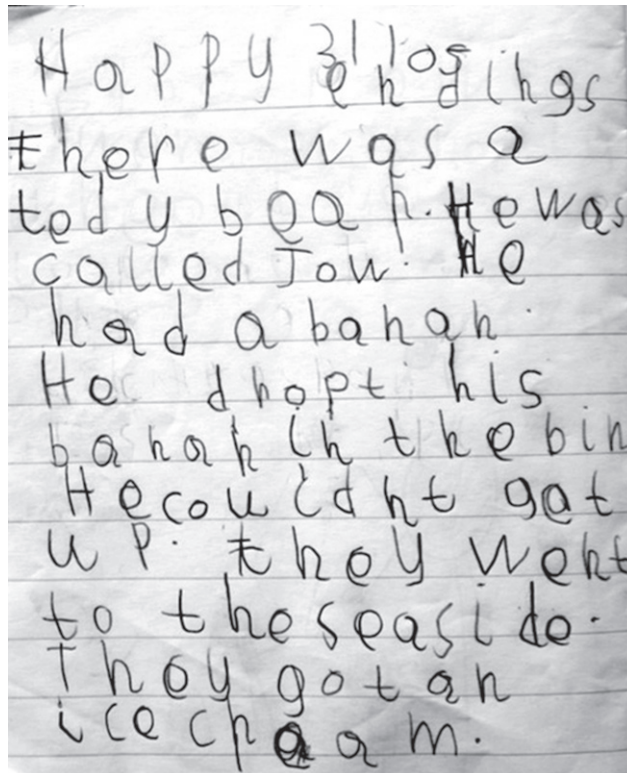 Happy endings
there was a
tedy bear. He was
called Jow. He
had a banan.
He dropt his
banan in the bin
He couldnt get
up. they went
to the seaside.
They got an
ice cream.